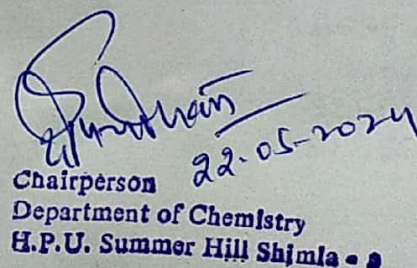 22-05-2024
Chairperson
Department of Chemistry
H.P.U. Summer Hill Shimla -